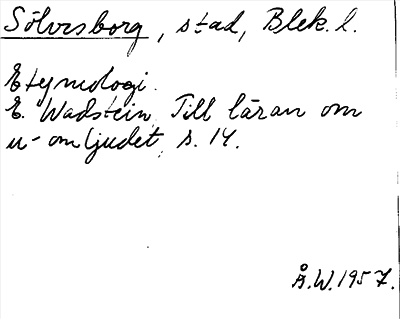 Sölvesborg, stad, Blek. l.
Etymologi.
E. Wadstein, Till läran om
u-omljudet, s. 14.
Å.W. 1957.